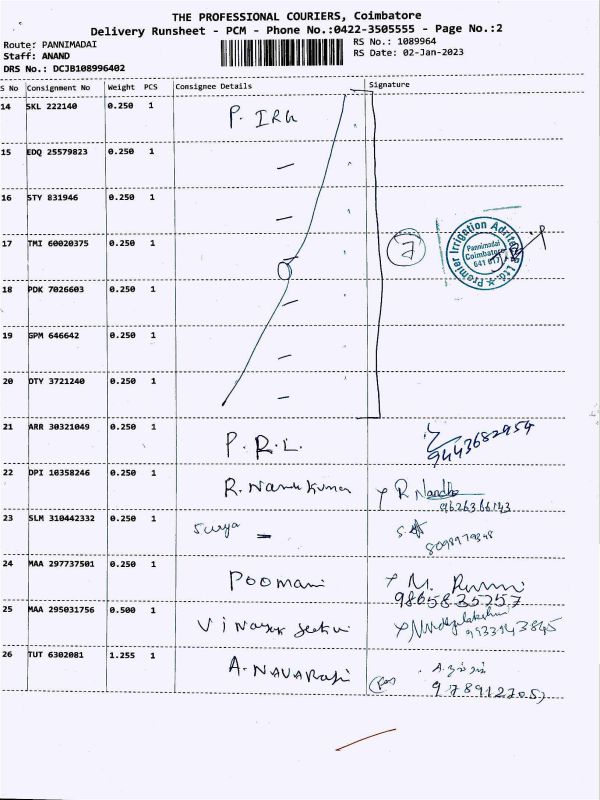 THE PROFESSIONAL COURIERS, Coimbatore
Delivery Runsheet - PCM - Phone No.:0422-3505555 - Page No.:2
Route: PANNIMADAI
RS No.: 1089964
Staff: ANAND
RS Date: 02-Jan-2023
DRS No.: DCJB108996402
S No Consignment No Weight PCS Consignee Details Signature
14 SKL 222140 0.250 1 P. IRG
15 EDQ 25579823 0.250 1
16 STY 831946 0.250 1
17 TMI 60020375 0.250 1 7
Premier Irrigation Adritec Pvt. Ltd.
Pannimadai
Coimbatore
641 017
18 PDK 7026603 0.250 1
19 GPM 646642 0.250 1
20 OTY 3721240 0.250 1
21 ARR 30321049 0.250 1 P.R.L. 9443682954
22 DPI 10358246 0.250 1 R. Nandkumar R Nandha
9626366143
23 SLM 310442332 0.250 1 Surya
8098979348
24 MAA 297737501 0.250 1 Poomani M.
9865835257
25 MAA 295031756 0.500 1 Vinayak
26 TUT 6302081 1.255 1 A. NAVARAJ